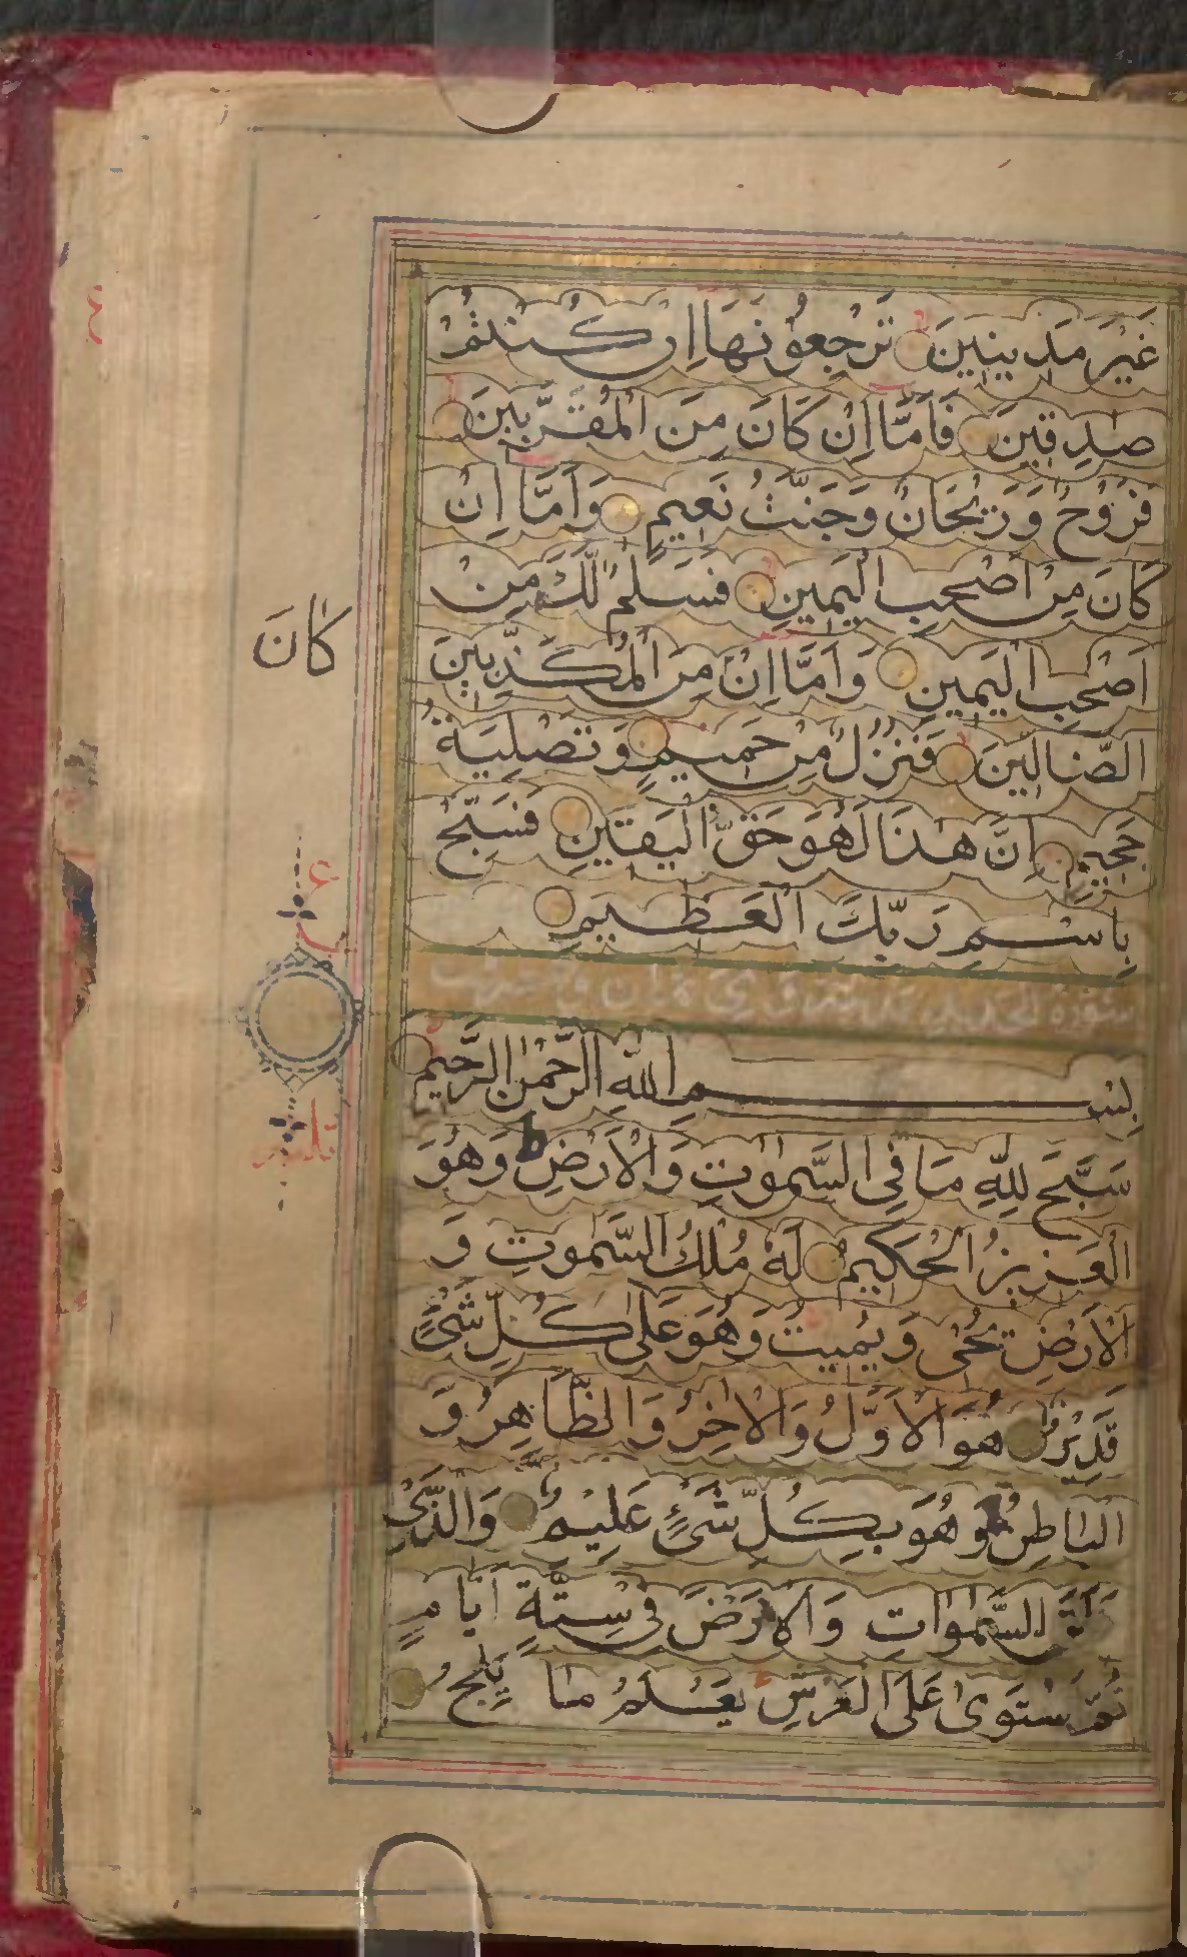 غَيْرَ مَدِينِينَ تَرْجِعُوْنَهَا اِنْ كُنْتُمْ
صٰدِقِينَ فَاَمَّا اِنْ كَانَ مِنَ الْمُقَرَّبِينَ
فَرَوْحٌ وَرَيْحَانٌ وَجَنَّتُ نَعِيمٍ وَاَمَّا اِنْ
كَانَ مِنْ اَصْحٰبِ الْيَمِينِ فَسَلٰمٌ لَّكَ مِنْ
اَصْحٰبِ الْيَمِينِ وَاَمَّا اِنْ مِنَ الْمُكَذِّبِينَ
كَانَ
الضَّالِّينَ فَنُزُلٌ مِنْ حَمِيمٍ وَتَصْلِيَةُ
جَحِيمٍ اِنَّ هٰذَا لَهُوَ حَقُّ الْيَقِينِ فَسَبِّحْ
بِاسْمِ رَبِّكَ الْعَظِيمِ
ع
سُوْرَةُ
بِسْمِ اللّٰهِ الرَّحْمٰنِ الرَّحِيمِ
سَبَّحَ لِلّٰهِ مَا فِى السَّمٰوٰتِ وَالْاَرْضِ وَهُوَ
الْعَزِيزُ الْحَكِيمُ لَهٗ مُلْكُ السَّمٰوتِ وَ
الْاَرْضِ يُحْىٖ وَيُمِيتُ وَهُوَ عَلٰى كُلِّ شَىْءٍ
قَدِيْرٌ هُوَ الْاَوَّلُ وَالْاٰخِرُ وَالظَّاهِرُ وَ
الْبَاطِنُ وَهُوَ بِكُلِّ شَىْءٍ عَلِيْمٌ وَالَّذِىْ
السَّمٰوَاتِ وَالْاَرْضَ فِى سِتَّةِ اَيَّامٍ
ثُمَّ سْتَوٰى عَلَى الْعَرْشِ يَعْلَمُ مَا يَلِجُ